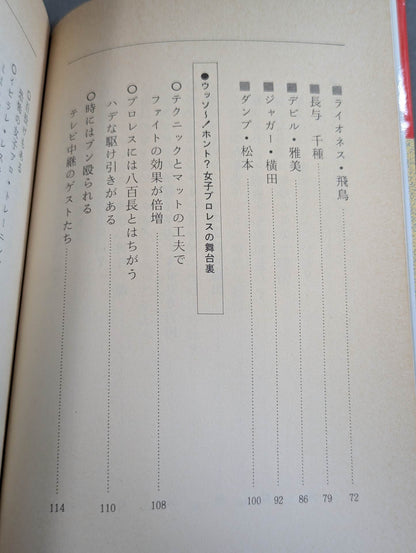 ■ライオネス・飛鳥……72
■長与 千種……79
■デビル・雅美……86
■ジャガー・横田……92
■ダンプ・松本……100
●ウッソ〜!ホント?女子プロレスの舞台裏
○テクニックとマットの工夫で
ファイトの効果が倍増……108
○プロレスには八百長とはちがう
ハデな駆け引きがある……110
○時にはブン殴られる
テレビ中継のゲストたち……114